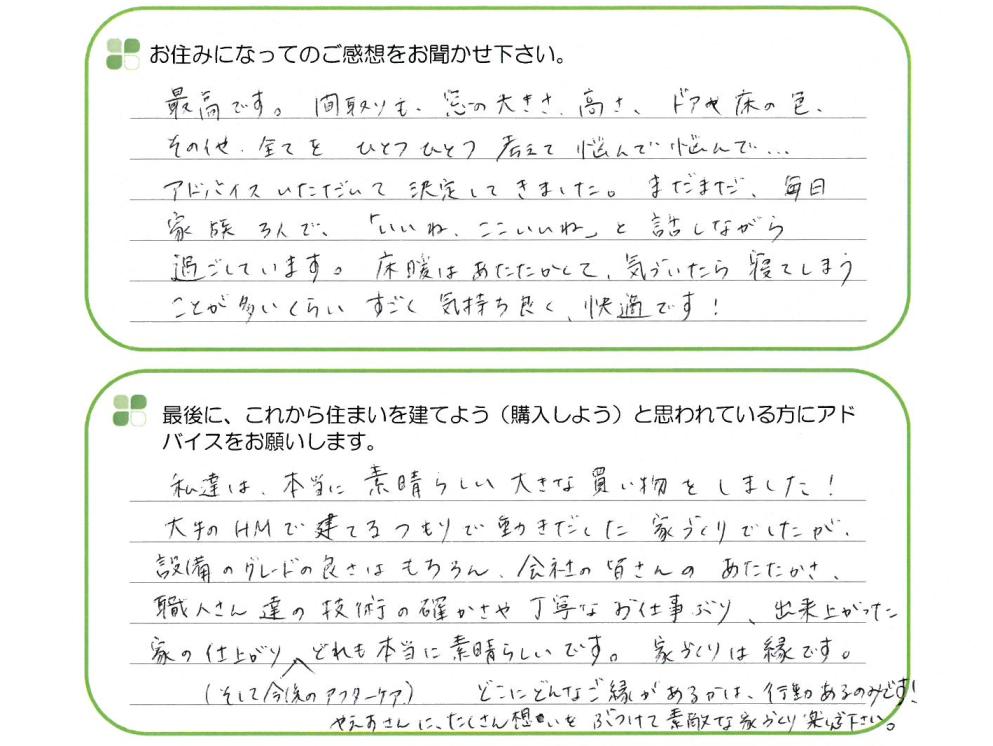 お住みになってのご感想をお聞かせ下さい。
最高です。間取りも、窓の大きさ、高さ、ドアや床の色、
その他、全てを ひとつひとつ 考えて 悩んで悩んで…
アドバイスいただいて 決定してきました。まだまだ、毎日
家族3人で、「いいね、ここいいね」と 話しながら
過ごしています。床暖はあたたかくて、気づいたら 寝てしまう
ことが多いくらい すごく 気持ち良く、快適です!
最後に、これから住まいを建てよう(購入しよう)と思われている方にアド
バイスをお願いします。
私達は、本当に 素晴らしい 大きな 買い物をしました!
大手のHMで建てるつもりで動きだした 家づくりでしたが、
設備のグレードの良さはもちろん、会社の皆さんの あたたかさ、
職人さん達の 技術の確かさや 丁寧なお仕事ぶり、出来上がった
家の仕上がり どれも本当に素晴らしいです。家づくりは縁です。
(そして今後のアフターケア) どこにどんなご縁があるかは、行動あるのみです!
やえおさんに、たくさん想いを ぶつけて素敵な家づくり楽しんで下さい。